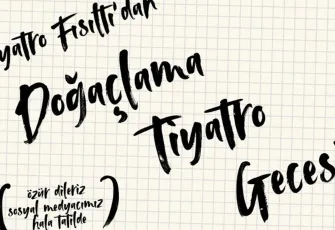 yatro Fısıltı'dan
Doğaçlama
Tiyatro
Geces
(özür dileriz
sosyal medyacımız
hala tatilde)